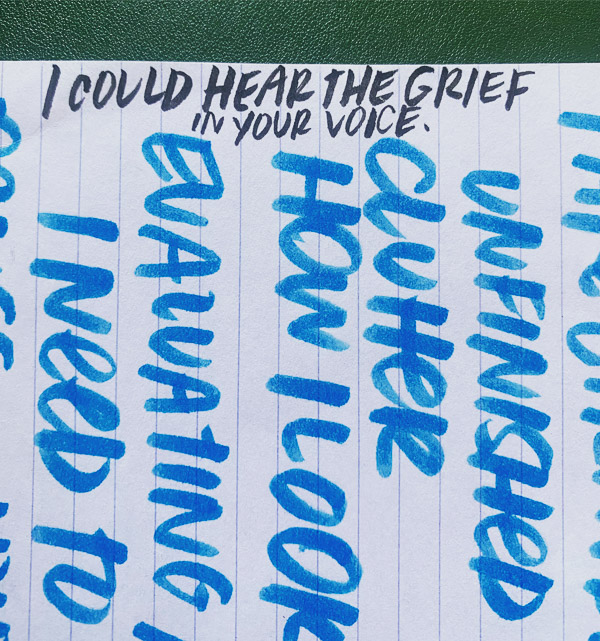 I COULD HEAR THE GRIEF
IN YOUR VOICE.
UNFINISHED
CLUTTER
HOW I LOOK
EVALUATING
I NEED TO